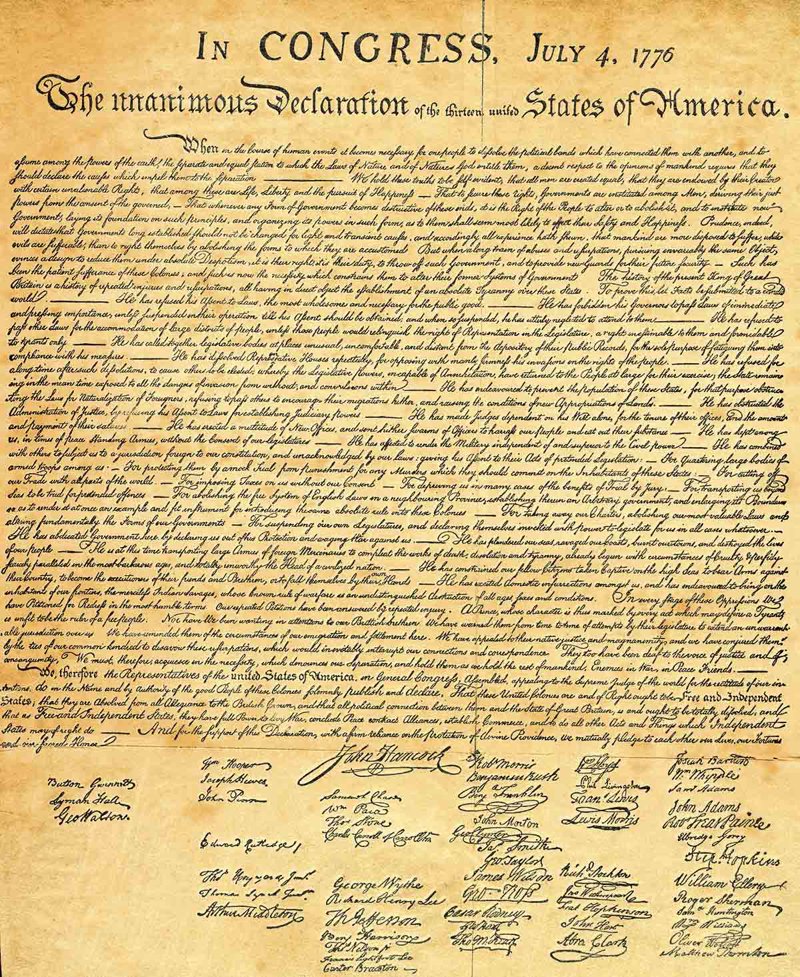 IN CONGRESS, JULY 4, 1776
The unanimous Declaration of the thirteen united States of America.
When in the Course of human events it becomes necessary for one people to dissolve the political bands which have connected them with another, and to
assume among the powers of the earth, the separate and equal station to which the Laws of Nature and of Nature's God entitle them, a decent respect to the opinions of mankind requires that they
should declare the causes which impel them to the separation. — We hold these truths to be self-evident, that all men are created equal, that they are endowed by their Creator
with certain unalienable Rights, that among these are Life, Liberty and the pursuit of Happiness — That to secure these rights, Governments are instituted among Men, deriving their just
powers from the consent of the governed, — That whenever any Form of Government becomes destructive of these ends, it is the Right of the People to alter or to abolish it, and to institute new
Government, laying its foundation on such principles, and organizing its powers in such form, as to them shall seem most likely to effect their Safety and Happiness. Prudence, indeed,
will dictate that Governments long established should not be changed for light and transient causes; and accordingly all experience hath shewn, that mankind are more disposed to suffer, while
evils are sufferable, than to right themselves by abolishing the forms to which they are accustomed. But when a long train of abuses and usurpations, pursuing invariably the same Object,
evinces a design to reduce them under absolute Despotism, it is their right, it is their duty, to throw off such Government, and to provide new Guards for their future security. — Such has
been the patient sufferance of these Colonies; and such is now the necessity which constrains them to alter their former Systems of Government. The history of the present King of Great
Britain is a history of repeated injuries and usurpations, all having in direct object the establishment of an absolute Tyranny over these States. To prove this, let Facts be submitted to a candid
world. — He has refused his Assent to Laws, the most wholesome and necessary for the public good. — He has forbidden his Governors to pass Laws of immediate
and pressing importance, unless suspended in their operation till his Assent should be obtained; and when so suspended, he has utterly neglected to attend to them. — He has refused to
pass other Laws for the accommodation of large districts of people, unless those people would relinquish the right of Representation in the Legislature, a right inestimable to them and formidable
to tyrants only. — He has called together legislative bodies at places unusual, uncomfortable, and distant from the depository of their Public Records, for the sole purpose of fatiguing them into
compliance with his measures. — He has dissolved Representative Houses repeatedly, for opposing with manly firmness his invasions on the rights of the people. — He has refused for
a long time, after such dissolutions, to cause others to be elected; whereby the Legislative powers, incapable of Annihilation, have returned to the People at large for their exercise; the State remain-
ing in the mean time exposed to all the dangers of invasion from without, and convulsions within. — He has endeavoured to prevent the population of these States; for that purpose obstruc-
ting the Laws for Naturalization of Foreigners; refusing to pass others to encourage their migrations hither, and raising the conditions of new Appropriations of Lands. — He has obstructed the
Administration of Justice, by refusing his Assent to Laws for establishing Judiciary powers. — He has made Judges dependent on his Will alone, for the tenure of their offices, and the amount
and payment of their salaries. — He has erected a multitude of New Offices, and sent hither swarms of Officers to harass our People and eat out their substance. — He has kept among
us, in times of peace, Standing Armies, without the Consent of our legislatures. — He has affected to render the Military independent of and superior to the Civil power. — He has combined
with others to subject us to a jurisdiction foreign to our constitution, and unacknowledged by our laws; giving his Assent to their Acts of pretended Legislation: — For Quartering large bodies of
armed troops among us: — For protecting them by a mock Trial from punishment for any Murders which they should commit on the Inhabitants of these States: — For cutting off
our Trade with all parts of the world: — For imposing Taxes on us without our Consent: — For depriving us in many cases of the benefits of Trial by Jury: — For transporting us beyond
Seas to be tried for pretended offences: — For abolishing the free System of English Laws in a neighbouring Province, establishing therein an Arbitrary government, and enlarging its Boundaries
so as to render it at once an example and fit instrument for introducing the same absolute rule into these Colonies: — For taking away our Charters, abolishing our most valuable Laws and
altering fundamentally the Forms of our Governments: — For suspending our own Legislatures, and declaring themselves invested with power to legislate for us in all cases whatsoever. —
He has abdicated Government here by declaring us out of his Protection and waging War against us. — He has plundered our seas, ravaged our Coasts, burnt our towns, and destroyed the Lives
of our people. — He is at this time transporting large Armies of foreign Mercenaries to compleat the works of death, desolation and tyranny, already begun with circumstances of Cruelty & perfidy
scarcely paralleled in the most barbarous ages, and totally unworthy the Head of a civilized nation. — He has constrained our fellow Citizens taken Captive on the high Seas to bear Arms against
their Country, to become the executioners of their friends and Brethren, or to fall themselves by their Hands. — He has excited domestic insurrections amongst us, and has endeavoured to bring on the
inhabitants of our frontiers, the merciless Indian Savages, whose known rule of warfare is an undistinguished destruction of all ages, sexes and conditions. In every stage of these Oppressions We
have Petitioned for Redress in the most humble terms: Our repeated Petitions have been answered by repeated injury. A Prince, whose character is thus marked by every act which may define a Tyrant,
is unfit to be the ruler of a free people. Nor have We been wanting in attentions to our Brittish brethren. We have warned them from time to time of attempts by their legislature to extend an unwarrant-
able jurisdiction over us. We have reminded them of the circumstances of our emigration and settlement here. We have appealed to their native justice and magnanimity, and we have conjured them
by the ties of our common kindred to disavow these usurpations, which would inevitably interrupt our connections and correspondence. They too have been deaf to the voice of justice and of
consanguinity. We must, therefore, acquiesce in the necessity, which denounces our Separation, and hold them, as we hold the rest of mankind, Enemies in War, in Peace Friends. —
We, therefore the Representatives of the united States of America, in General Congress, Assembled, appealing to the Supreme Judge of the world for the rectitude of our in-
tentions, do in the Name and by authority of the good People of these Colonies solemnly publish and declare, That these United Colonies are and of Right ought to be Free and Independent
States; that they are Absolved from all Allegiance to the British Crown, and that all political connection between them and the State of Great Britain, is and ought to be totally dissolved; and
that as Free and Independent States, they have full Power to levy War, conclude Peace, contract Alliances, establish Commerce, and to do all other Acts and Things which Independent
States may of right do. — And for the support of this Declaration, with a firm reliance on the protection of divine Providence, we mutually pledge to each other our Lives, our Fortunes
and our sacred Honor.
Button Gwinnett
Lyman Hall
Geo Walton.
Wm Hooper
Joseph Hewes
John Penn
Edward Rutledge
Thos Heyward Junr.
Thomas Lynch Junr.
Arthur Middleton
John Hancock
Samuel Chase
Wm Paca
Thos Stone
Charles Carroll of Carrollton
George Wythe
Richard Henry Lee
Th Jefferson
Benj Harrison
Thos Nelson jr
Francis Lightfoot Lee
Carter Braxton
Robt Morris
Benjamin Rush
Benj Franklin
John Morton
Geo Clymer
Jas Smith
Geo Taylor
James Wilson
Geo Ross
Caesar Rodney
Geo Read
Tho M:Kean
Wm Floyd
Phil Livingston
Frans Lewis
Lewis Morris
Richd Stockton
Jno Witherspoon
Fras Hopkinson
John Hart
Abra Clark
Josiah Bartlett
Wm Whipple
Saml Adams
John Adams
Robt Treat Paine
Elbridge Gerry
Step Hopkins
William Ellery
Roger Sherman
Saml Huntington
Wm Williams
Oliver Wolcott
Matthew Thornton